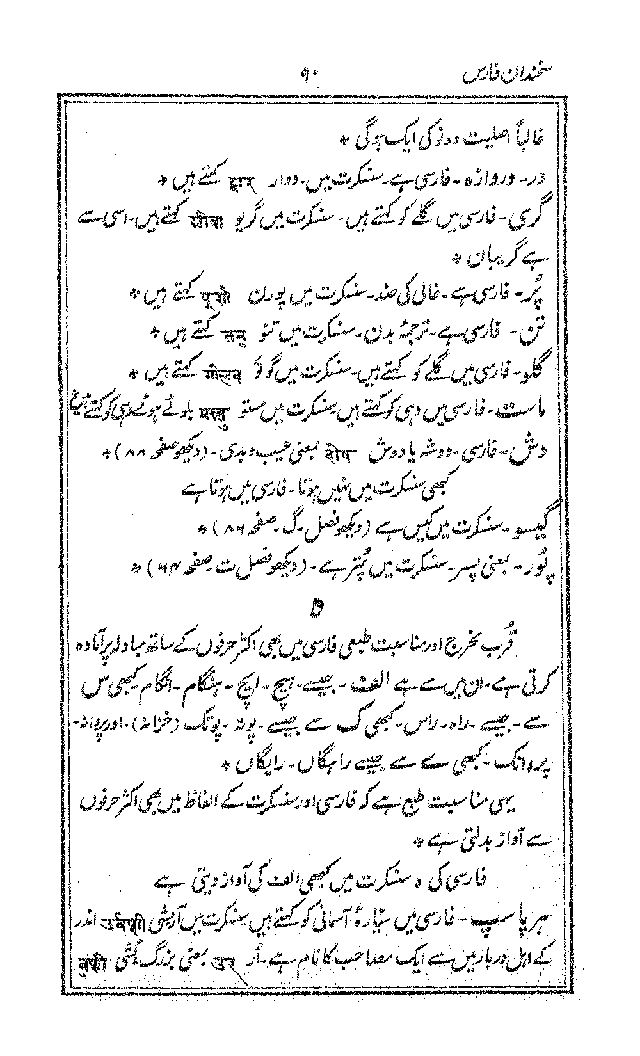 سخندان فارس ۹۰
غالباً اصلیت دونو کی ایک ہوگی *
در - دروازہ - فارسی ہے - سنسکرت میں - دوار द्वार کہتے ہیں *
گری - فارسی میں گلے کو کہتے ہیں - سنسکرت میں گریو ग्रीवा کہتے ہیں - اسی سے
ہے گریبان *
پُر - فارسی ہے - خالی کی ضد - سنسکرت میں پورن पूर्ण کہتے ہیں *
تن - فارسی ہے - ترجمۂ بدن - سنسکرت میں تنُو तनु کہتے ہیں *
گلو - فارسی میں گلے کو کہتے ہیں - سنسکرت میں گوئو کہتے ہیں *
ماست - فارسی میں دہی کو کہتے ہیں سنسکرت میں مستو मस्तु بلوئے ہوئے دہی کو کہتے ہیں
دش - فارسی - دوشہ یا دوش दोष بمعنی عیب و بدی - (دیکھو صفحہ ۸۸) *
کبھی سنسکرت میں نہیں ہوتا - فارسی میں ہوتا ہے
گیسو - سنسکرت میں کیس ہے (دیکھو فصل - گ - صفحہ ۸۶) *
پُور - بمعنی پسر - سنسکرت میں پُتر ہے - (دیکھو فصل ت صفحہ ۶۴) *
ہ
قُرب مخرج اور مناسبت طبعی فارسی میں بھی اکثر حرفوں کے ساتھ مبادلہ پر آمادہ
کرتی ہے - ان میں سے ہے الف - جیسے - ہیچ - ایچ - ہنگام - انگام کبھی س
سے - جیسے - راہ - راس - کبھی ک سے جیسے - پوتہ - پوتک (خزانہ) - اور پروانہ -
پروانک - کبھی ے سے جیسے راہگاں - رایگاں *
یہی مناسبت طبع ہے کہ فارسی اور سنسکرت کے الفاظ میں بھی اکثر حرفوں
سے آواز بدلتی ہے *
فارسی کی ہ سنسکرت میں کبھی الف کی آواز دیتی ہے
ہر پاسپ - فارسی میں سیّارۂ آسمانی کو کہتے ہیں سنسکرت میں اُربشی उर्वशी اندر
کے اہل دربار میں سے ایک مصاحب کا نام ہے - اُر उर بمعنی بزرگ